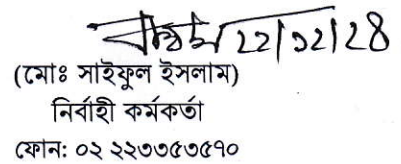 ২২/১২/২৪
(মোঃ সাইফুল ইসলাম)
নির্বাহী কর্মকর্তা
ফোন: ০২ ২২৩৩৫৩৫৭০